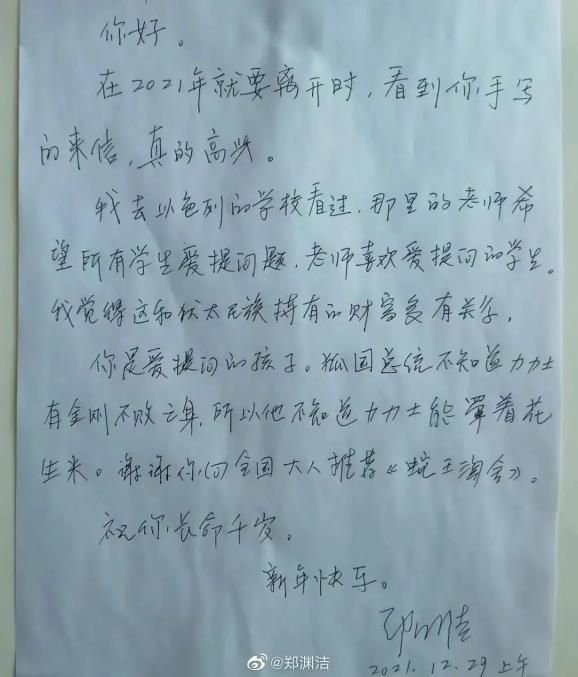 你好。
在2021年就要离开时，看到你手写
的来信，真的高兴。
我去以色列的学校看过，那里的老师希
望所有学生爱提问题，老师喜欢爱提问的学生。
我觉得这和犹太民族持有的财富多有关系，
你是爱提问的孩子。狐国总统不知道力力士
有金刚不败之身，所以他不知道力力士能罩着花
生米。谢谢你向全国大人推荐《蛇王淘金》。
祝你长命千岁。
新年快乐。
郑渊洁
2021.12.29上午
@郑渊洁